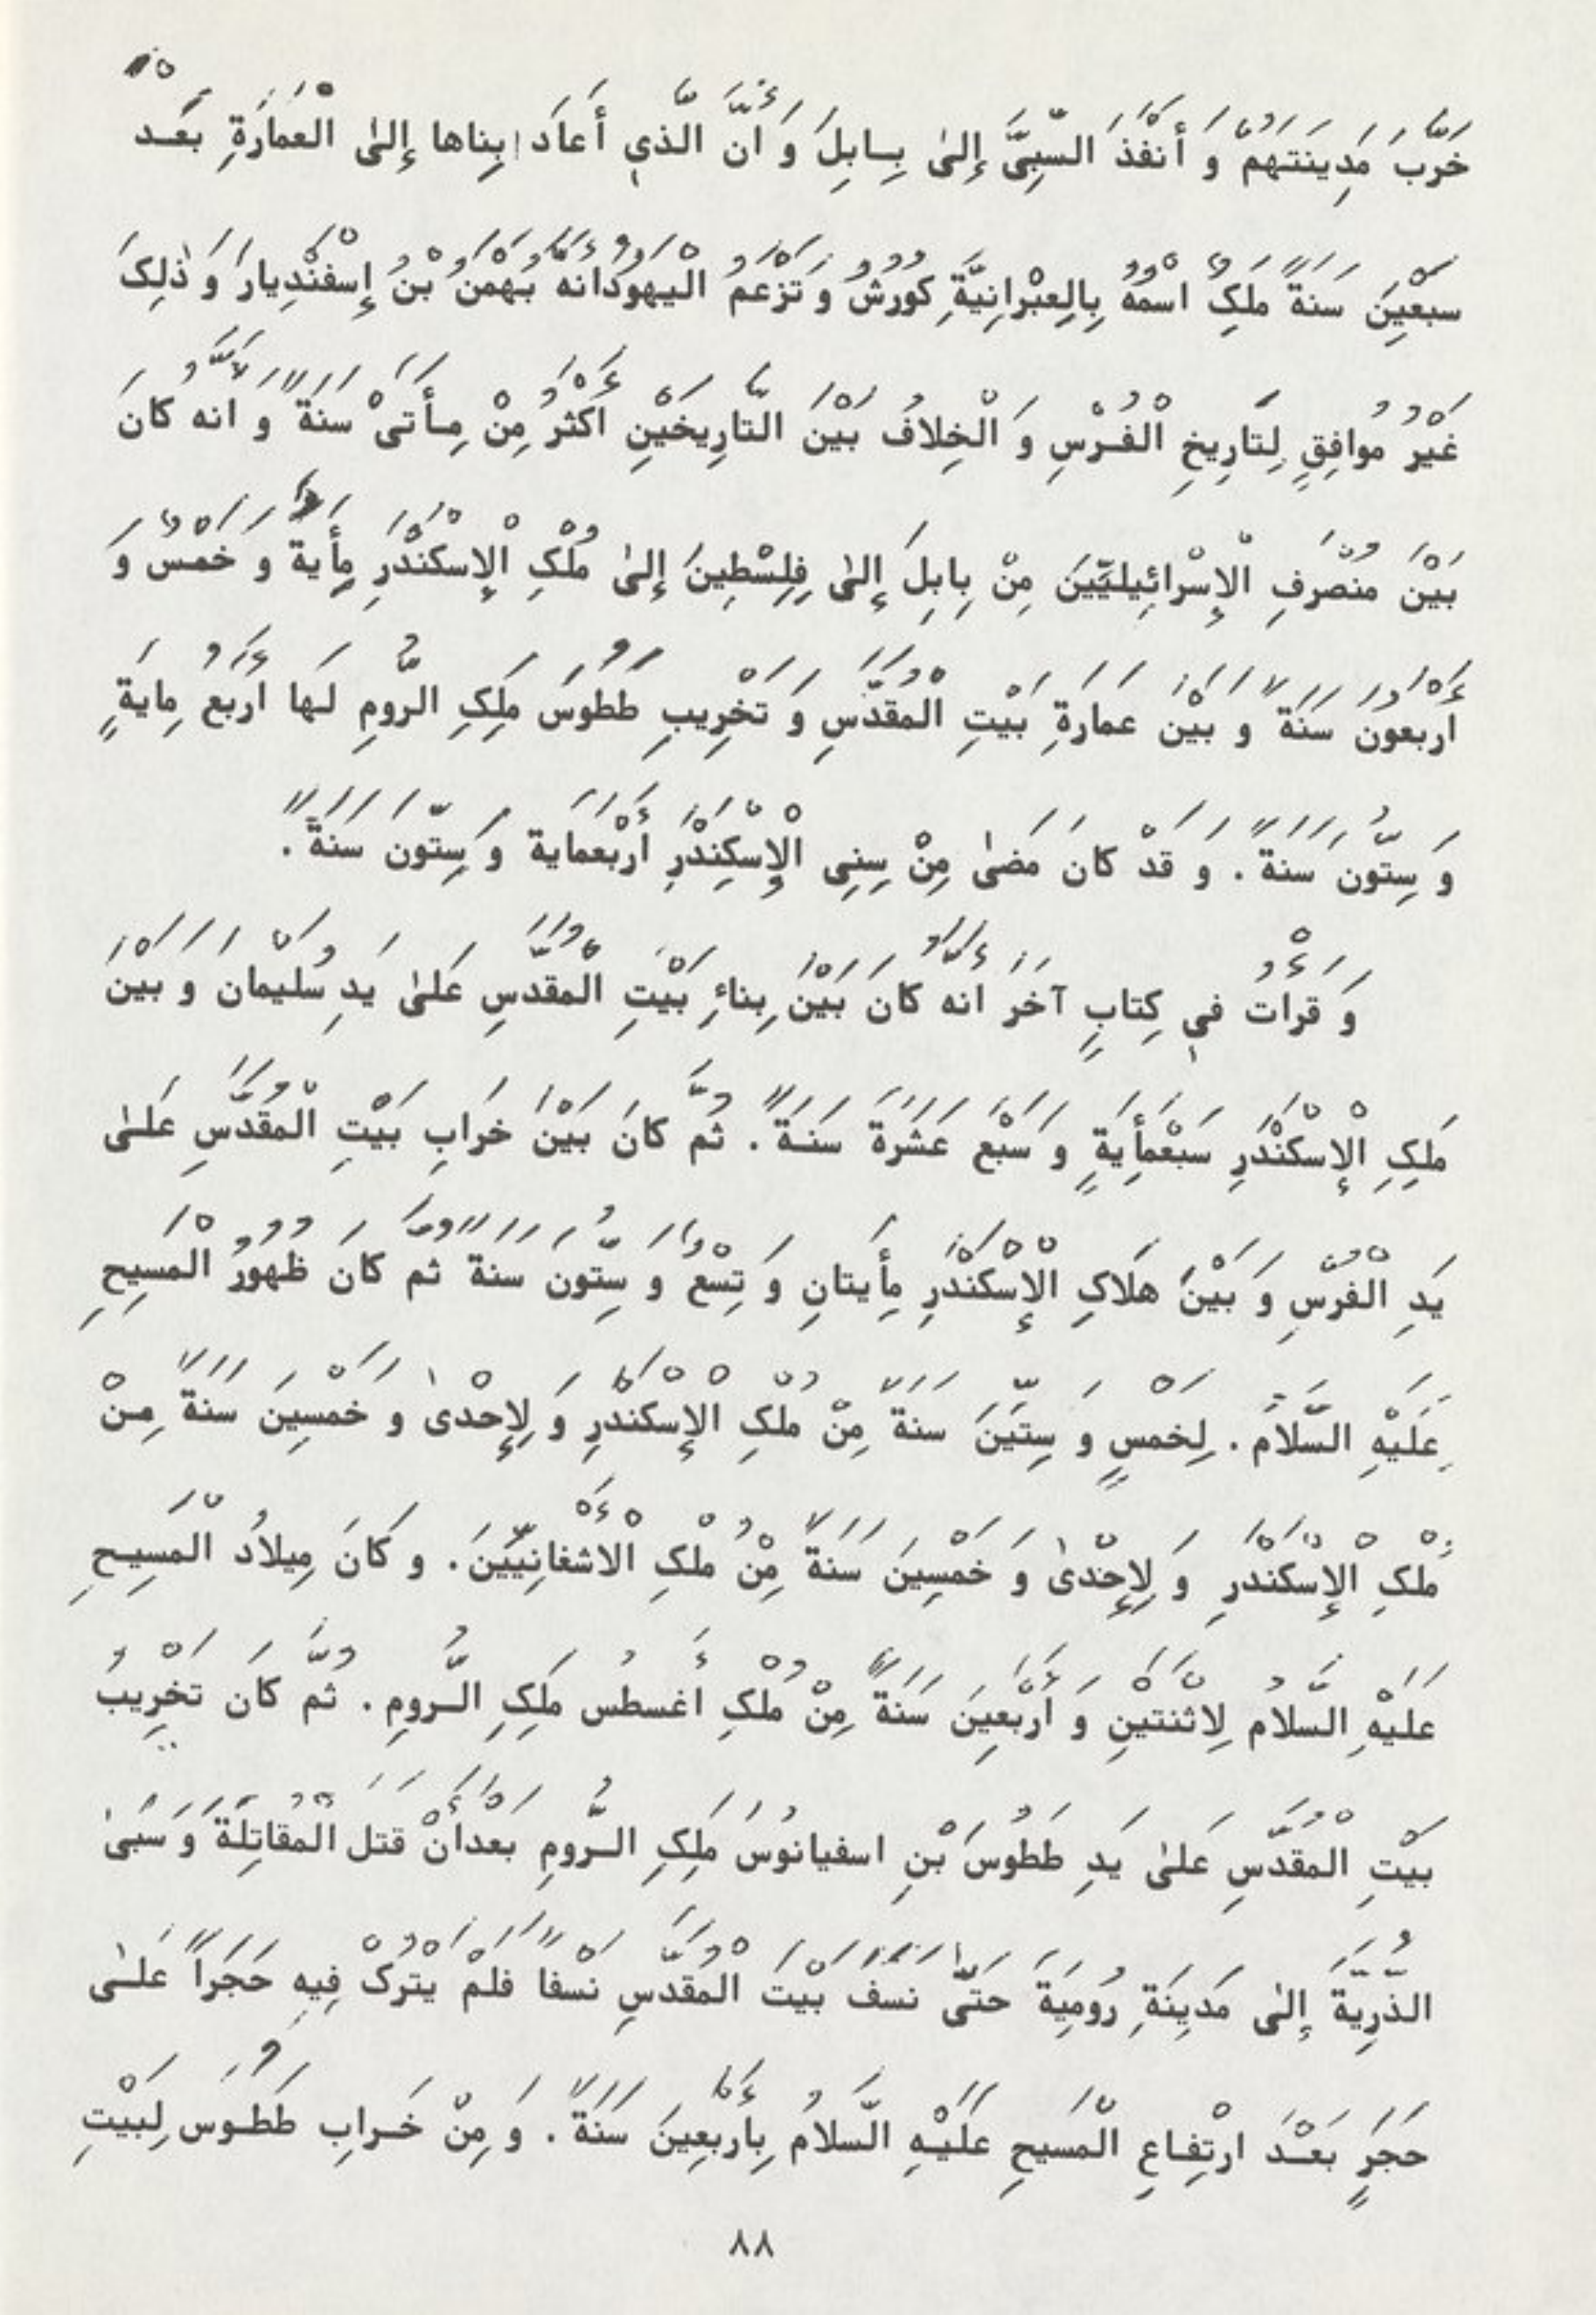 خَرَّبَ مَدِينَتَهُمْ وَ أَنْفَذَ السَّبِىَّ إِلىٰ بِـابِلَ وَ أَنَّ الَّذيِ أَعادَ بِناها إِلىٰ الْعمَارَةِ بَعْـد
سبْعِينَ سَنَةً مَلِکٌ اسْمُهُ بِالِعبْرانِيَّةِ کُورُشُ وَ تَزْعَمُ الْيَهودُانَّهُ بَهْمَنُ بْنُ إِسْفَنْدِيارَ وَ ذٰلِکَ
غَيْرُ مُوافِقٍ لِتَارِيخِ الْفُـرْسِ وَ الْخِلافُ بَيْنَ التَّارِيخَيْنِ أَکْثَرُ مِنْ مِـأَتَىْ سَنَةً وَ انَّهُ کانَ
بَيْنَ مُنْصَرفِ الْإِسْرائِيلِيّينَ مِنْ بِابِلَ إِلىٰ فِلِسْطِينَ إِلىٰ مُلْکِ الْإِسْکَنْدَرِ مِأَيةَ وَ خَمْسٌ وَ
أَرْبَعُونَ سَنَةً وَ بَيْنَ عَمارَةِ بَيْتِ الْمُقَدَّسِ وَ تَخْرِيبِ طَطُوسَ مَلِکِ الرُّومِ لَها أَرْبَعُ مِايَةٍ
وَ سِتُّونَ سَنَةً . وَ قَدْ کانَ مَضىٰ مِنْ سِنِى الْإِسْکِنْدَرِ أَرْبَعَمايَة وَ سِتّونَ سَنَةً .
وَ قَرأْتُ فيِ کِتابٍ آخَرَ أَنَّهُ کانَ بَيْنَ بِناءِ بَيْتِ الْمُقَدَّسِ عَلىٰ يَدِ سُلَيْمانَ وَ بَيْنَ
مَلِکِ الْإِسْکَنْدَرِ سَبْعَمأَِيَةٍ وَ سَبْعَ عَشَرَةَ سَنَـةً . ثُمَّ کانَ بَيْنَ خَرابِ بَيْتِ الْمُقَدَّسِ عَلـىٰ
يَدِ الْفُرْسِ وَ بَيْنَ هَلَاکِ الْإِسْکَنْدَرِ مِأَيتانِ وَ تِسْعَ وَ سِتُّونَ سَنَةً ثُمَّ کانَ ظُهُورُ الْمَسِيحِ
عَلَيْهِ السَّلَامُ . لِخَمْسٍ وَ سِتّينَ سَنَةً مِنْ مُلْکِ الْإِسْکَنْدَرِ وَ لِإِحْدىٰ وَ خَمْسِينَ سَنَةً مِـنْ
مُلْکِ الْإِسْکَنْدَرِ وَ لِإِحْدىٰ وَ خَمْسِينَ سَنَةً مِنْ مُلْکِ الْأَشْغانِيّينَ . وَ کَانَ مِيلاُد الْمَسِيـحِ
عَلَيْهِ السَّلامُ لِاثْنَتَيْنِ وَ أَرْبَعِينَ سَنَةً مِنْ مُلْکِ أَغُسطُس مَلِکِ الـرُّومِ . ثُمَّ کانَ تَخْرِيبُ
بَيْتِ الْمُقَدَّسِ عَلىٰ يَدِ طَطُوسَ بْنِ اسفيانُوسَ مَلِکِ الـرُّومِ بَعْدَأَنْ قَتَلَ الْمُقاتِلَةَ وَ سَبىٰ
الذُّرِيَّةَ إِلىٰ مَدِينَةِ رُومِيَةَ حَتّىٰ نَسَفَ بَيْتَ الْمُقَدَّسِ نَسْفاً فَلَمْ يَتْرُکْ فِيهِ حَجَراً عَلـىٰ
حَجَرٍ بَعْـدَ ارتِفـاعِ الْمَسِيحِ عَلَيْـهِ السَّلامُ بِأَرْبَعِينَ سَنَةً . وَ مِنْ خَـرابِ طَطُـوسَ لِبَيْتِ
٨٨